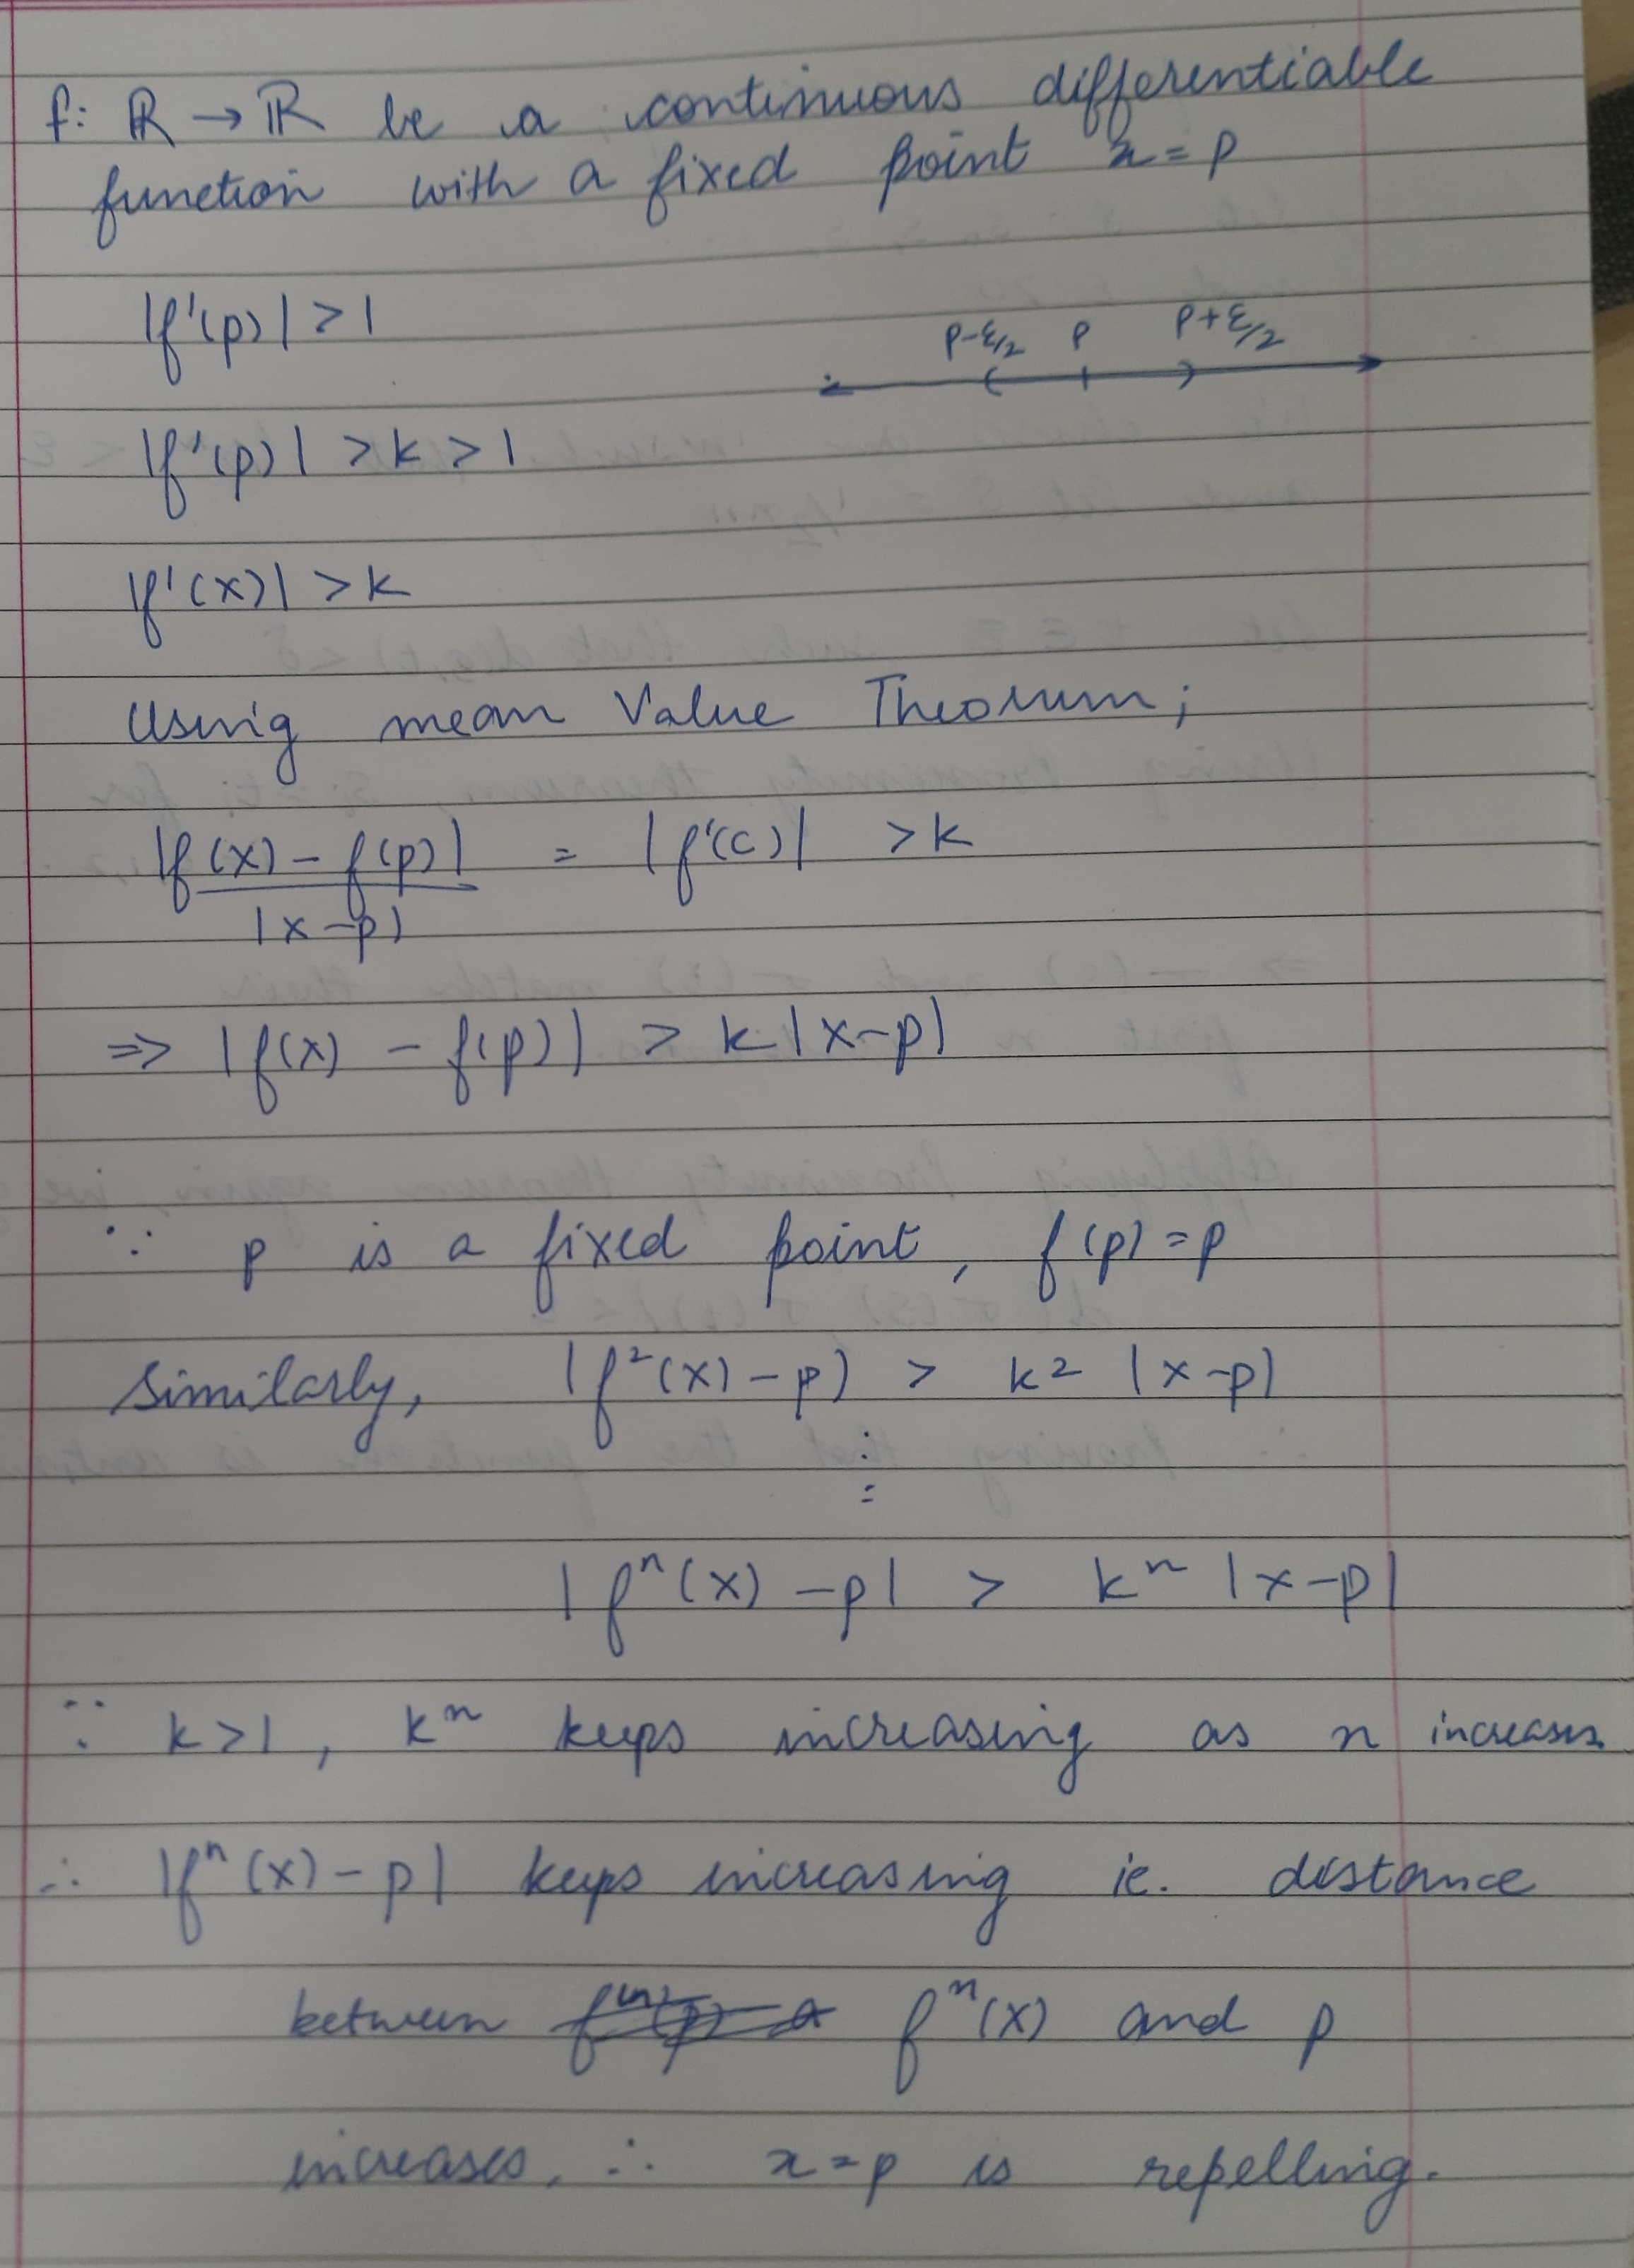 f: ℝ → ℝ be a continuous differentiable
function with a fixed point x = p
|f'(p)| > 1
p-ε/2 p p+ε/2
|f'(p)| > k > 1
|f'(x)| > k
Using mean Value Theorem;
|f(x) - f(p)| / |x-p| = |f'(c)| > k
⇒ |f(x) - f(p)| > k |x-p|
∵ p is a fixed point, f(p) = p
Similarly, |f²(x) - p| > k² |x-p|
⋮
|fⁿ(x) - p| > kⁿ |x-p|
∵ k>1, kⁿ keeps increasing as n increases
∴ |fⁿ(x) - p| keeps increasing ie. distance
between fⁿ(x) and p
increases. ∴ x=p is repelling.